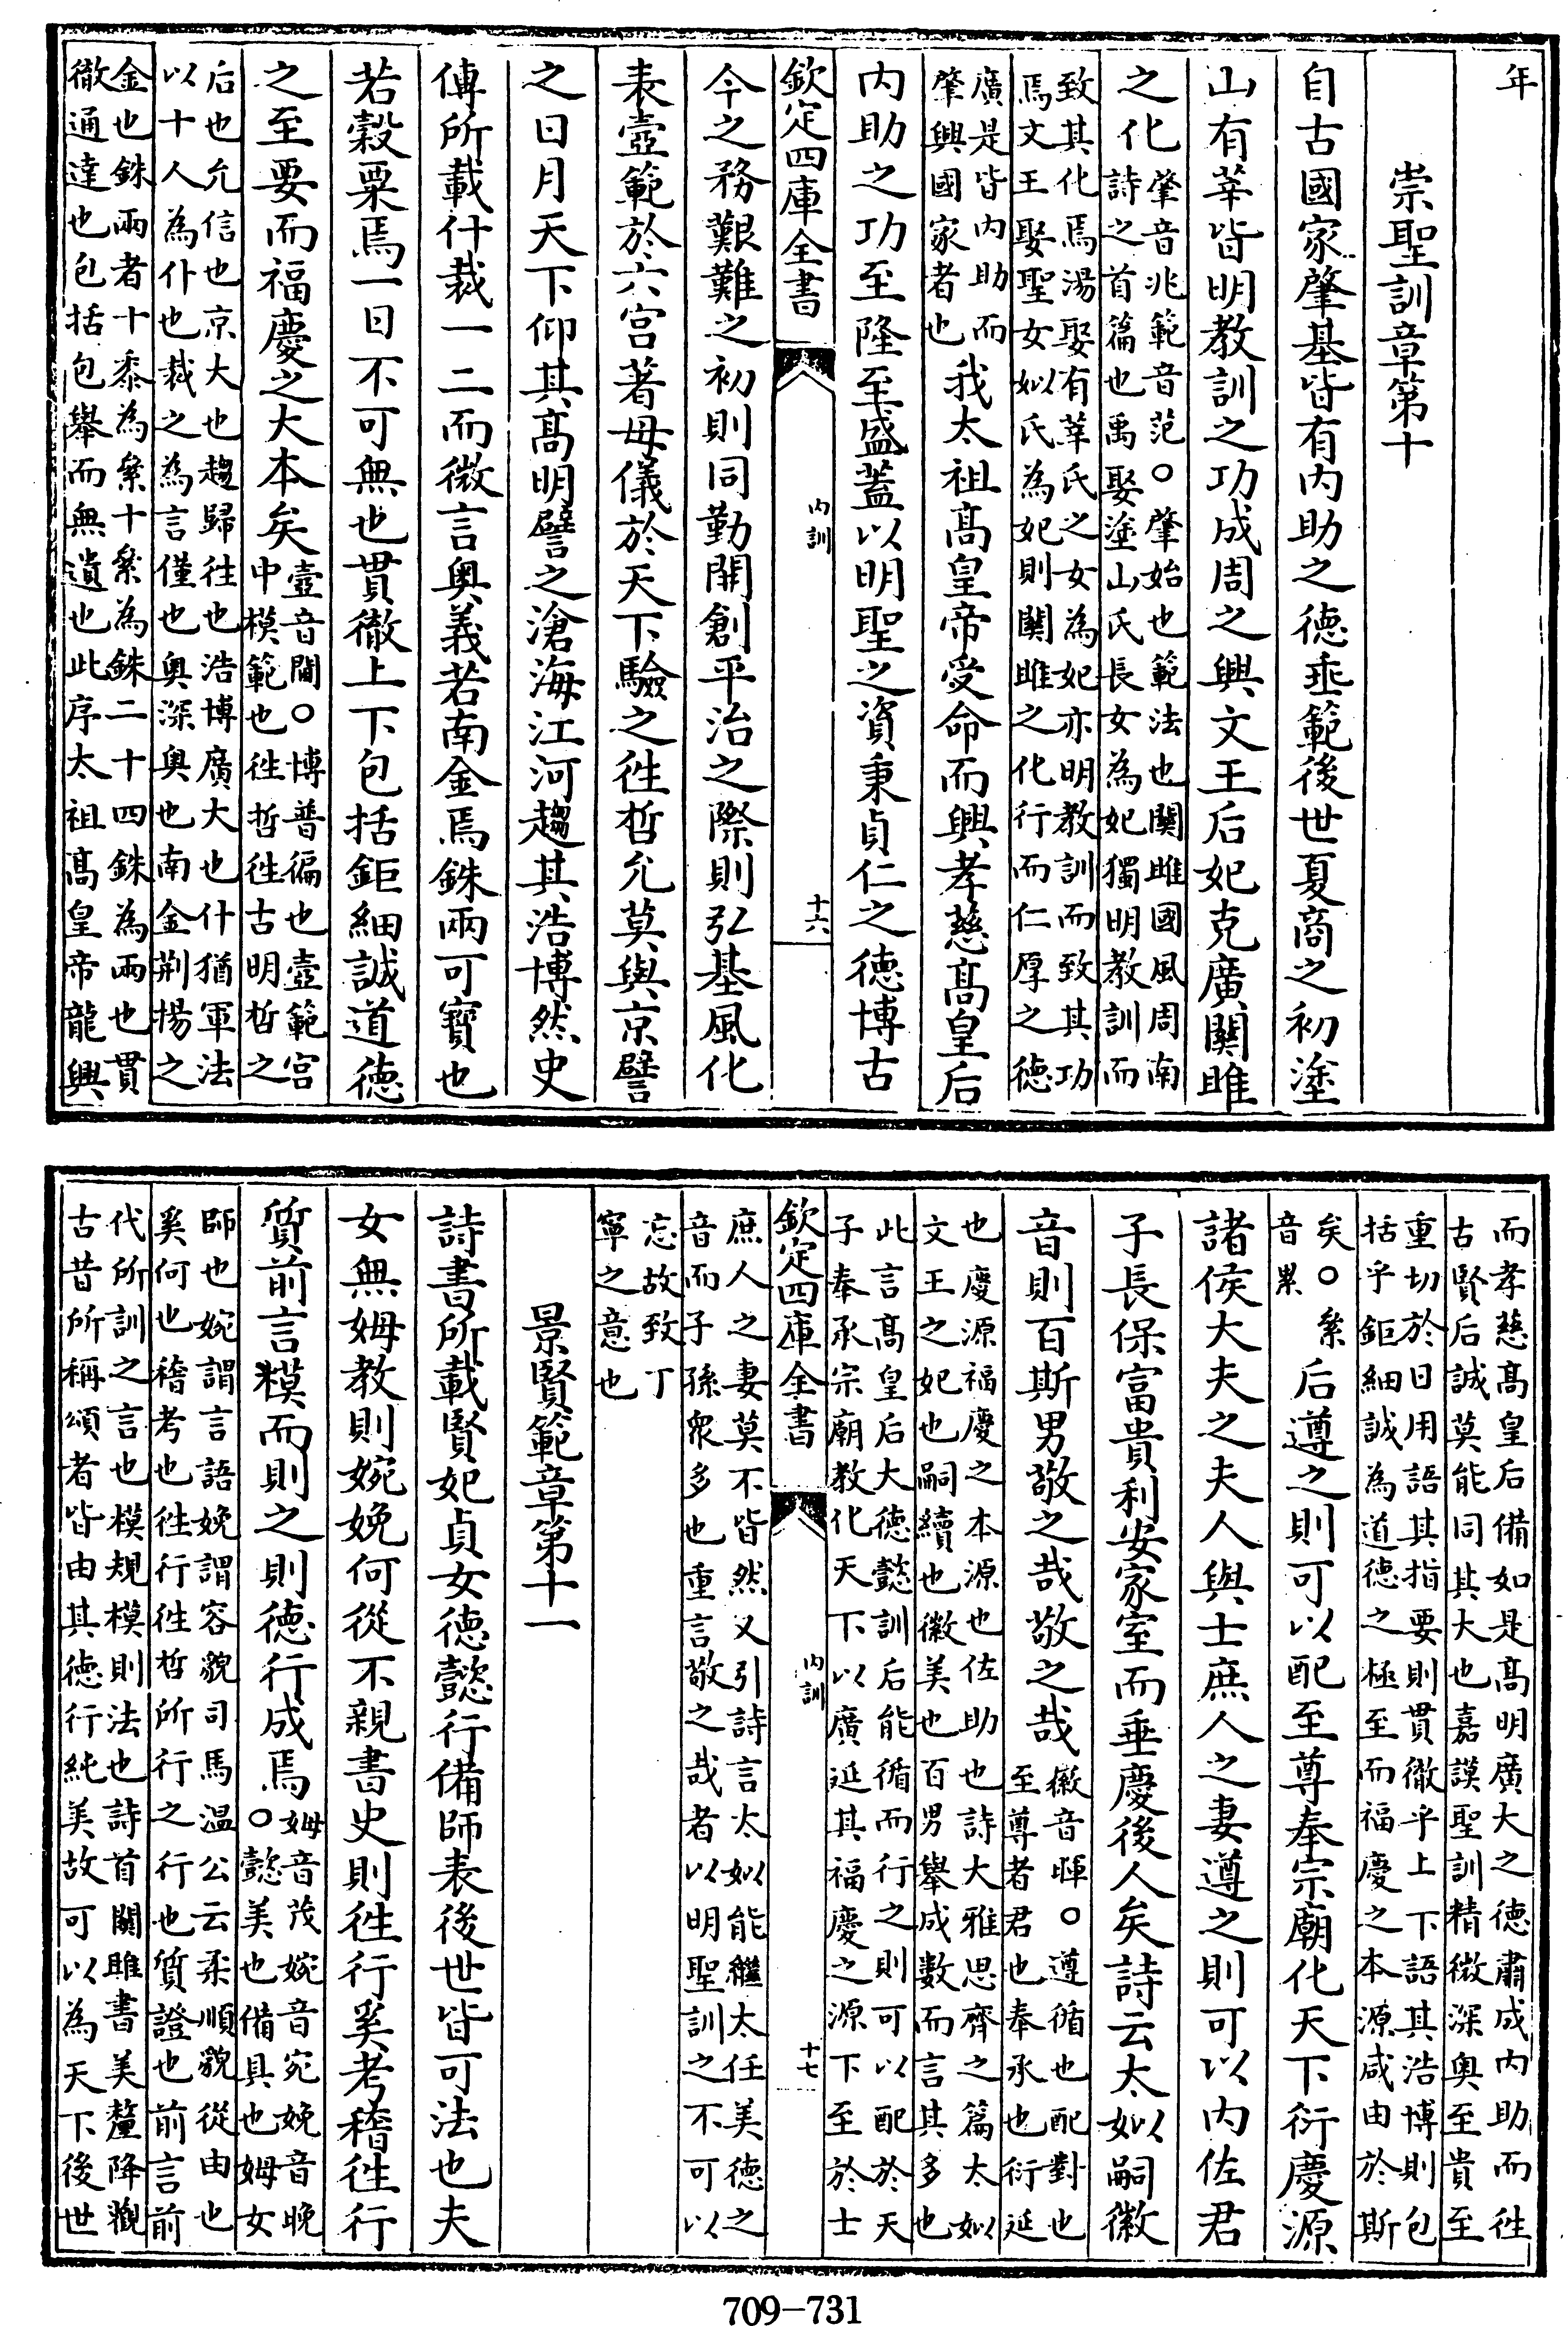 年
崇聖訓章第十
自古國家肇基皆有内助之徳垂範後世夏商之初塗
山有莘皆明教訓之功成周之興文王后妃克廣關雎
之化
肇音兆範音范○肇始也範法也關雎國風周南
詩之首篇也禹娶塗山氏長女為妃獨明教訓而
致其化焉湯娶有莘氏之女為妃亦明教訓而致其功
焉文王娶聖女姒氏為妃則關雎之化行而仁厚之徳
廣是皆内助而
肇興國家者也
我太祖髙皇帝受命而興孝慈髙皇后
内助之功至隆至盛蓋以明聖之資秉貞仁之徳博古
欽定四庫全書
内訓
十六
今之務艱難之初則同勤開創平治之際則弘基風化
表壼範於六宫著母儀於天下驗之徃哲允莫與京譬
之日月天下仰其髙明譬之滄海江河趨其浩博然史
傳所載什裁一二而微言奥義若南金焉銖兩可寳也
若穀粟焉一日不可無也貫徹上下包括鉅細誠道徳
之至要而福慶之大本矣
壼音閫○博普徧也壼範宫
中模範也徃哲徃古明哲之
后也允信也京大也趨歸徃也浩博廣大也什猶軍法
以十人為什也裁之為言僅也奥深奥也南金荆揚之
金也銖兩者十黍為絫十絫為銖二十四銖為兩也貫
徹通達也包括包舉而無遺也此序太祖髙皇帝龍興
而孝慈髙皇后備如是髙明廣大之徳肅成内助而徃
古賢后誠莫能同其大也嘉謨聖訓精微深奥至貴至
重切於日用語其指要則貫徹乎上下語其浩博則包
括乎鉅細誠為道徳之極至而福慶之本源咸由於斯
矣○絫
音累
后遵之則可以配至尊奉宗廟化天下衍慶源
諸侯大夫之夫人與士庶人之妻遵之則可以内佐君
子長保富貴利安家室而垂慶後人矣詩云太姒嗣徽
音則百斯男敬之哉敬之哉
徽音暉○遵循也配對也
至尊者君也奉承也衍延
也慶源福慶之本源也佐助也詩大雅思齊之篇太姒
文王之妃也嗣續也徽美也百男舉成數而言其多也
此言髙皇后大徳懿訓后能循而行之則可以配於天
子奉承宗廟教化天下以廣延其福慶之源下至於士
欽定四庫全書
内訓
十七
庶人之妻莫不皆然又引詩言太姒能繼太任美德之
音而子孫衆多也重言敬之哉者以明聖訓之不可以
忘故致丁
寧之意也
景賢範章第十一
詩書所載賢妃貞女徳懿行備師表後世皆可法也夫
女無姆教則婉娩何從不親書史則徃行奚考稽徃行
質前言模而則之則徳行成焉
姆音茂婉音宛娩音晚
○懿美也備具也姆女
師也婉謂言語娩謂容貌司馬温公云柔順貌從由也
奚何也稽考也徃行徃哲所行之行也質證也前言前
代所訓之言也模規模則法也詩首關雎書美釐降觀
古昔所稱頌者皆由其徳行純美故可以為天下後世
709-731